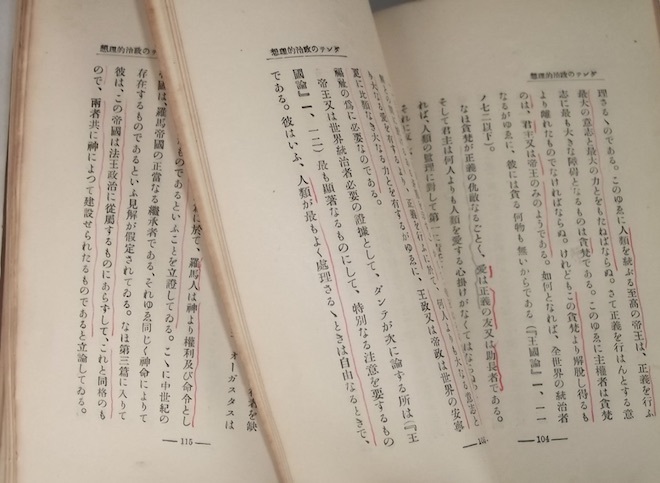 ダンテの政治的理想
理さるゝのである。このゆゑに人類を統ぶる至高の帝王は、正義を行ふ
最大の意志と最大の力とをもたねばならぬ。さて正義を行はんとする意
志に最も大きな障碍となるものは貪婪である。このゆゑに主權者は貪婪
より離れたものでなければならぬ。けれどもこの貪婪より解脱し得るも
のは、君主又は帝王のみのようである。如何となれば、全世界の統治者
なるがゆゑに、彼には貪る何物も無いからである(『王國論』一、一一
ノ七二以下)。
なほ貪婪が正義の仇敵なるごとく、愛は正義の友又は助長者である。
そして君主は何人よりも人類を愛する心掛けがなくてはならな
れば、人類の管理に對して第一に
それに
104
ダンテの政治的理想
大なる力とを有するがゆゑに、王政又は帝政は世界の安寧
福祉の爲に必要なのである。
帝王又は世界統治者必要の證據として、ダンテが次に論する所は(『王
國論』一、一二)最も顯著なるものにして、特別なる注意を要するもの
である。彼はいふ、人類が最もよく處理さるゝときは自由なるときで、
ダンテの政治的理想
を缺
オーガスタスは
に於て、羅馬人は神より權利及び命令とし
のであるといふことを立證してゐる。こゝに中世紀の
羅馬帝國の正當なる繼承者である、それゆゑ同じく神命によりて
存在するものであるといふ見解が假定されてゐる。なほ第三篇に入りて
彼は、この帝國は法王政治に從屬するものにあらずして、これと同格のも
ので、兩者共に神によつて建設せられたるものであると立論してゐる。
115